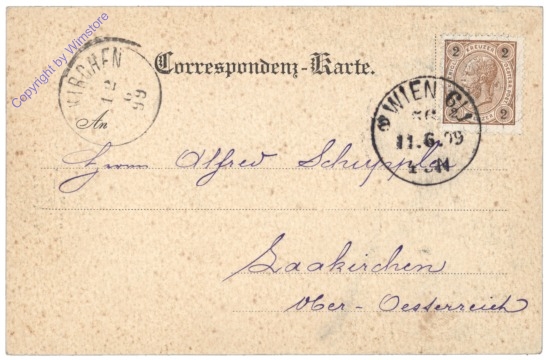 Copyright by Wimstore
KIRCHEN
12
6
99
Correspondenz-Karte.
2 KREUZER 2
WIEN 6/1
11.6.99
An
Herrn Alfred Schuppler
Laakirchen
Ober-Oesterreich
2 2